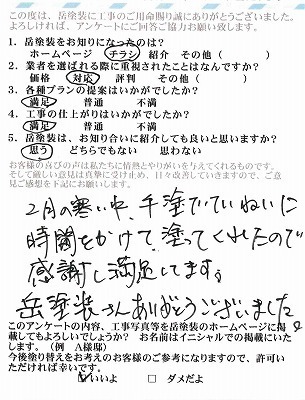 この度は、岳塗装に工事のご用命賜り誠にありがとうございました。
よろしければ、アンケートにご回答ご協力お願い致します。
1. 岳塗装をお知りになったのは?
ホームページ チラシ 紹介 その他( )
2. 業者を選ばれる際に重視されたことはなんですか?
価格 対応 評判 その他( )
3. 各種プランの提案はいかがでしたか?
満足 普通 不満
4. 工事の仕上がりはいかがでしたか?
満足 普通 不満
5. 岳塗装は、お知り合いに紹介しても良いと思いますか?
思う どちらでもない 思わない
お客様の喜びの声は私たちに情熱とやりがいを与えてくれるものです。
そして厳しい意見は真摯に受け止め、日々改善していきますので、ご意
見ご感想を下記にお願いします。
2月の寒い中、手塗でていねいに
時間をかけて、塗ってくれたので
感謝し満足してます。
岳塗装さんありがとうございました
このアンケートの内容、工事写真等を岳塗装のホームページに掲
載してもよろしいでしょうか? お名前はイニシャルでの掲載にいた
します。(例 A様邸)
今後塗り替えをお考えのお客様のご参考になりますので、許可い
ただければ幸いです。
☑いいよ □ ダメだよ